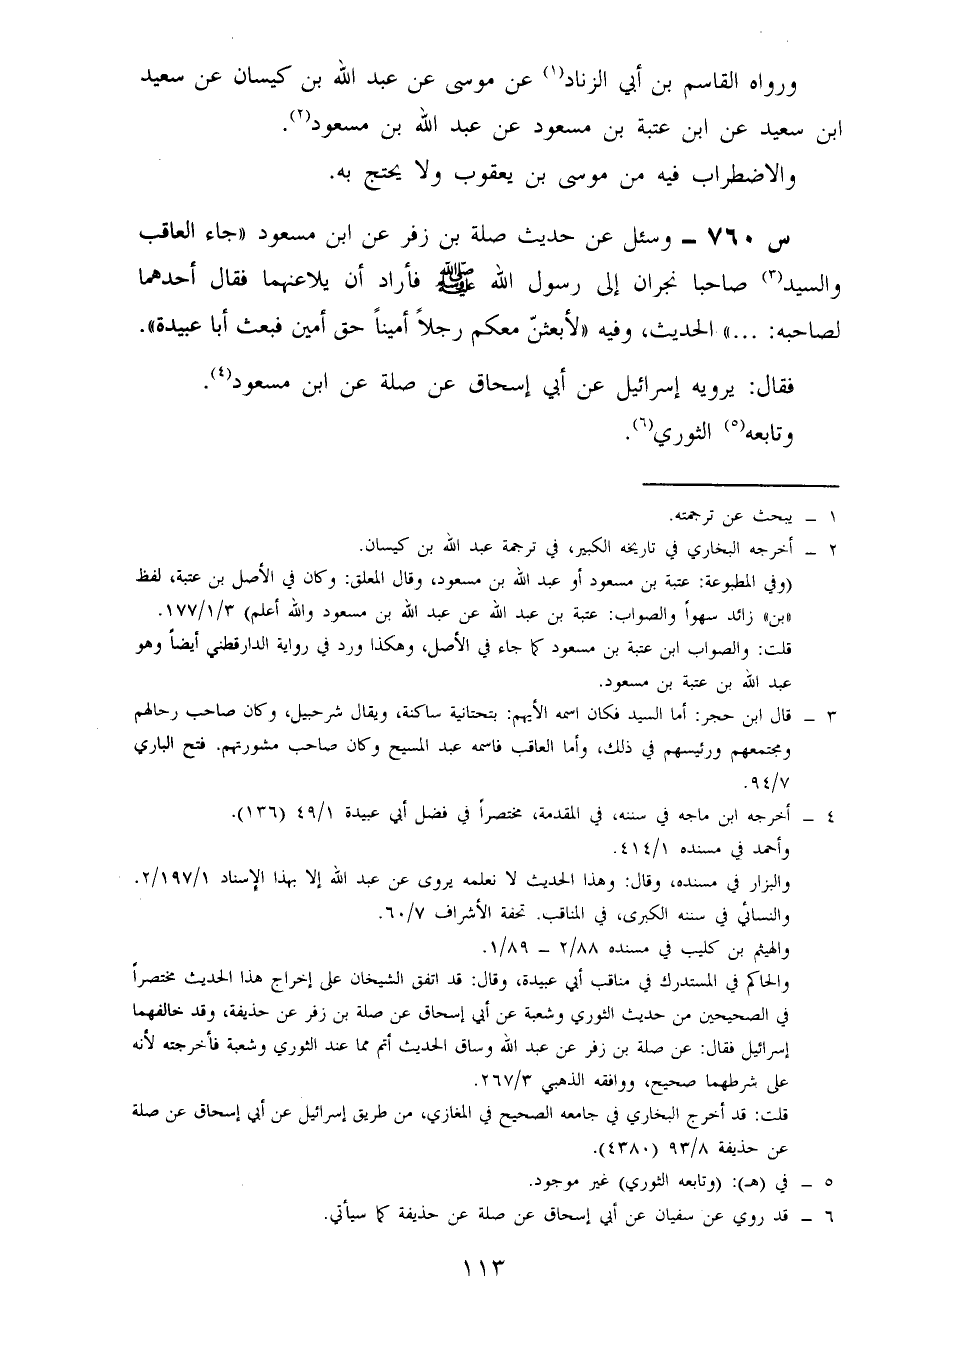 ورواه القاسم بن أبي الزناد(١) عن موسى عن عبد الله بن كيسان عن سعيد
ابن سعيد عن ابن عتبة بن مسعود عن عبد الله بن مسعود(٢).
والاضطراب فيه من موسى بن يعقوب ولا يحتج به.
س ٧٦٠ ــ وسئل عن حديث صلة بن زفر عن ابن مسعود «جاء العاقب
والسيد(٣) صاحبا نجران إلى رسول الله ﷺ فأراد أن يلاعنهما فقال أحدهما
لصاحبه: ...» الحديث، وفيه «لأبعثنّ معكم رجلاً أميناً حق أمين فبعث أبا عبيدة».
فقال: يرويه إسرائيل عن أبي إسحاق عن صلة عن ابن مسعود(٤).
وتابعه(٥) الثوري(٦).
١ ــ يبحث عن ترجمته.
٢ ــ أخرجه البخاري في تاريخه الكبير، في ترجمة عبد الله بن كيسان.
(وفي المطبوعة: عتبة بن مسعود أو عبد الله بن مسعود، وقال المعلق: وكان في الأصل بن عتبة، لفظ
«بن» زائد سهواً والصواب: عتبة بن عبد الله عن عبد الله بن مسعود والله أعلم) ١٧٧/١/٣.
قلت: والصواب ابن عتبة بن مسعود كما جاء في الأصل، وهكذا ورد في رواية الدارقطني أيضاً وهو
عبد الله بن عتبة بن مسعود.
٣ ــ قال ابن حجر: أما السيد فكان اسمه الأيهم: بتحتانية ساكنة، ويقال شرحبيل، وكان صاحب رحالهم
ومجتمعهم ورئيسهم في ذلك، وأما العاقب فاسمه عبد المسيح وكان صاحب مشورتهم. فتح الباري
٩٤/٧.
٤ ــ أخرجه ابن ماجه في سننه، في المقدمة، مختصراً في فضل أبي عبيدة ٤٩/١ (١٣٦).
وأحمد في مسنده ٤١٤/١.
والبزار في مسنده، وقال: وهذا الحديث لا نعلمه يروى عن عبد الله إلا بهذا الإسناد ٢/١٩٧/١.
والنسائي في سننه الكبرى، في المناقب. تحفة الأشراف ٦٠/٧.
والهيثم بن كليب في مسنده ٢/٨٨ ــ ١/٨٩.
والحاكم في المستدرك في مناقب أبي عبيدة، وقال: قد اتفق الشيخان على إخراج هذا الحديث مختصراً
في الصحيحين من حديث الثوري وشعبة عن أبي إسحاق عن صلة بن زفر عن حذيفة، وقد خالفهما
إسرائيل فقال: عن صلة بن زفر عن عبد الله وساق الحديث أتم مما عند الثوري وشعبة فأخرجته لأنه
على شرطهما صحيح، ووافقه الذهبي ٢٦٧/٣.
قلت: قد أخرج البخاري في جامعه الصحيح في المغازي، من طريق إسرائيل عن أبي إسحاق عن صلة
عن حذيفة ٩٣/٨ (٤٣٨٠).
٥ ــ في (هـ): (وتابعه الثوري) غير موجود.
٦ ــ قد روي عن سفيان عن أبي إسحاق عن صلة عن حذيفة كما سيأتي.
١١٣